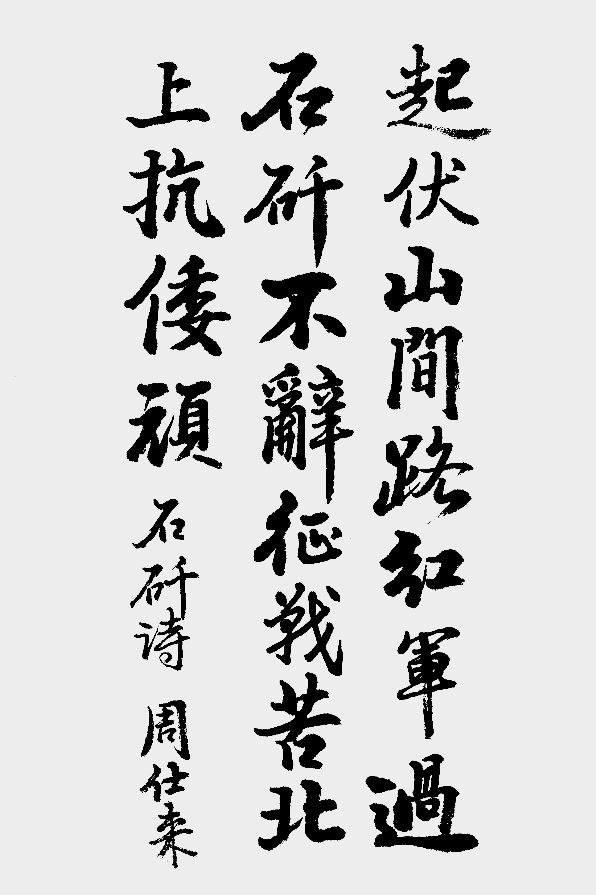 起伏山間路红軍過
石矸不辭征戰苦北
上抗倭頑
石矸诗 周仕来